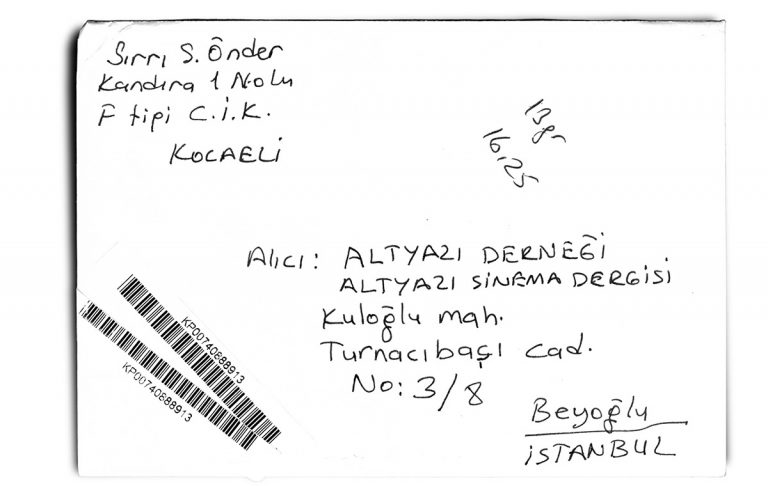 Sırrı S. Önder
Kandıra 1 Nolu
F tipi C.İ.K.
KOCAELİ
13 gr
16,25
Alıcı: ALTYAZI DERNEĞİ
ALTYAZI SİNEMA DERGİSİ
Kuloğlu mah.
Turnacıbaşı cad.
No: 3/8
Beyoğlu
İSTANBUL
KP00740688913
KP00740688913